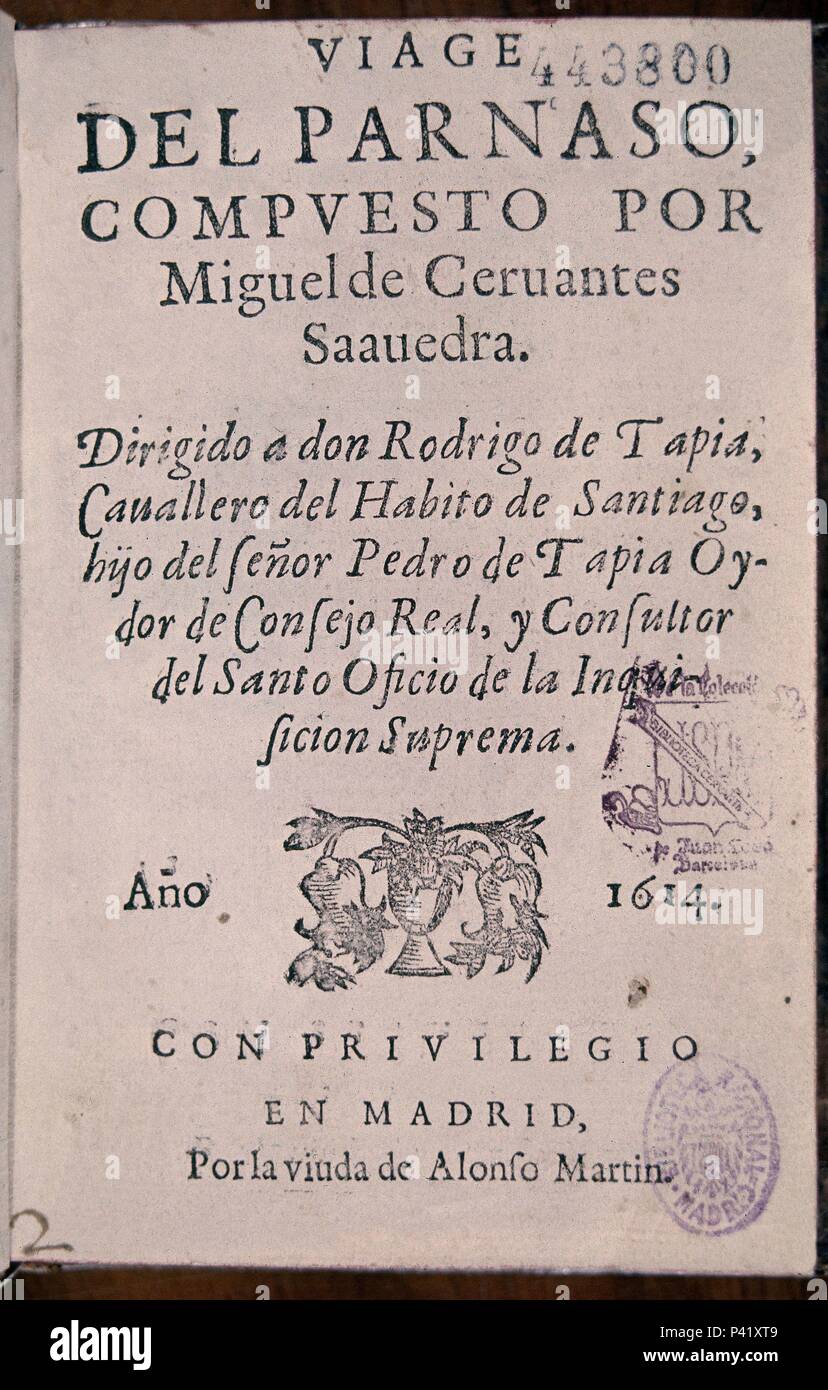 VIAGE
443800
DEL PARNASO,
COMPVESTO POR
Miguel de Ceruantes
Saauedra.
Dirigido a don Rodrigo de Tapia,
Cauallero del Habito de Santiago,
hijo del ſeñor Pedro de Tapia Oy-
dor de Conſejo Real, y Conſultor
del Santo Oficio de la Inqui-
ſicion Suprema.
de la Coleccio
BIBLIOTECA
de Juan
Barcelona
Año 1614.
CON PRIVILEGIO
EN MADRID,
Por la viuda de Alonſo Martin.
BIBLIOTECA NACIONAL
MADRID
2
alamy
alamy stock photo
P41XT9
www.alamy.com